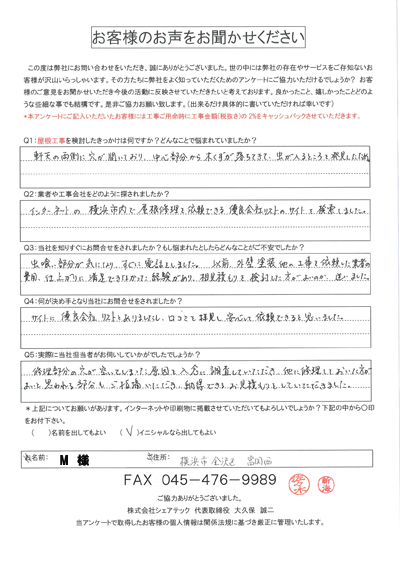 お客様のお声をお聞かせください
この度は弊社にお問い合わせをいただき、誠にありがとうございました。世の中には弊社の存在やサービスをご存知ないお
客様が沢山いらっしゃいます。その方たちに弊社をよく知っていただくためのアンケートにご協力いただけるでしょうか？ お客
様のご意見をお聞かせいただき今後の活動に反映させていただきたいと考えております。良かったこと、嬉しかったことどのよ
うな些細な事でも結構です。是非ご協力お願い致します。（出来るだけ具体的に書いていただければ幸いです）
*本アンケートにご記入いただいたお客様には工事ご用命時に工事金額(税抜き)の 2%をキャッシュバックさせていただきます。
Q1：屋根工事を検討したきっかけは何ですか？どんなことで悩まれていましたか？
軒天の両側に穴が開いており、中心部分から木くずが落ちてきて、虫が入るところを発見したため
Q2：業者や工事会社をどのように探されましたか？
インターネットの 横浜市内で屋根修理を依頼できる優良会社リストのサイトで検索しました。
Q3：当社を知りすぐにお問合せをされましたか？もし悩まれたとしたらどんなことがご不安でしたか？
虫喰い部分が気になり、すぐに電話をしました。 以前、外壁塗装他の工事を依頼した業者の
費用、仕上がりに満足できなかった経験があり、相見積もりを検討した方がよいのか、迷いました。
Q4：何が決め手となり当社にお問合せをされましたか？
サイトに優良会社リストとありましたし、口コミでも拝見し、安心して依頼できると思いました。
Q5：実際に当社担当者がお伺いしていかがでしたでしょうか？
修理部分の穴が空いてしまった原因を入念に調査していただき、他に修理しておいた方が
よいと思われる部分もご指摘いただき、納得できるお見積もりをしていただきました。
＊上記についてお願いがあります。インターネットや印刷物に掲載させていただいてもよろしいでしょうか？下記の中から〇印
をお付下さい。
（ ）名前を出してもよい （✓）イニシャルなら出してもよい
お名前： M 様 ご住所： 横浜市金沢区 富岡西
FAX 045-476-9989
ご協力ありがとうございました。
株式会社シェアテック 代表取締役 大久保 誠二
当アンケートで取得したお客様の個人情報は関係法規に基づき厳正に管理いたします。